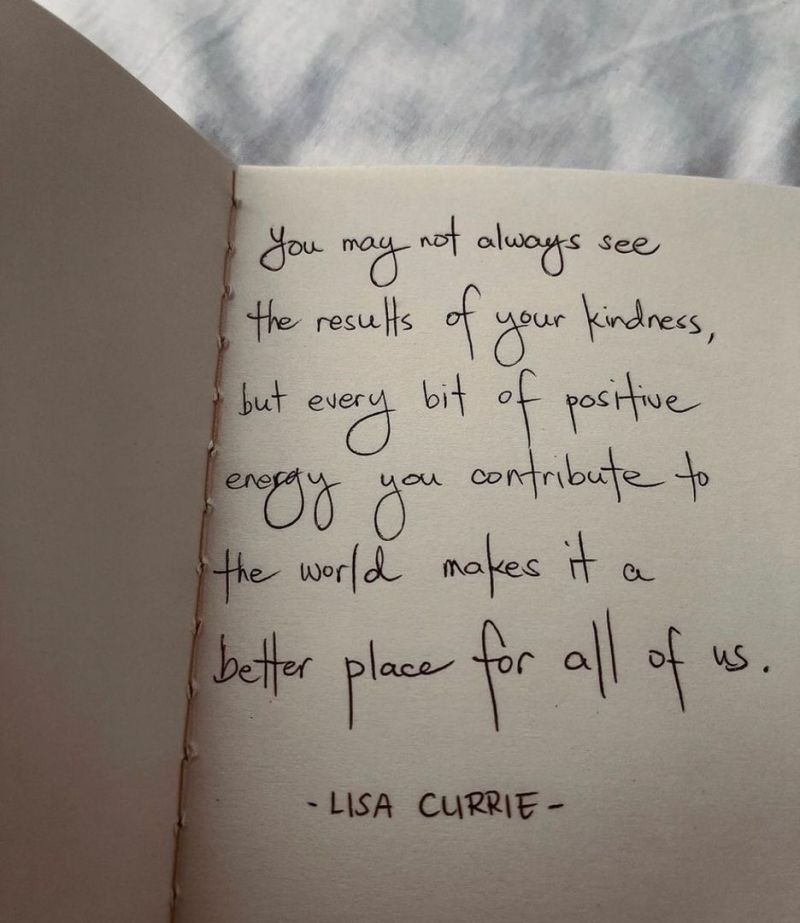 You may not always see
the results of your kindness,
but every bit of positive
energy you contribute to
the world makes it a
better place for all of us.
- LISA CURRIE -